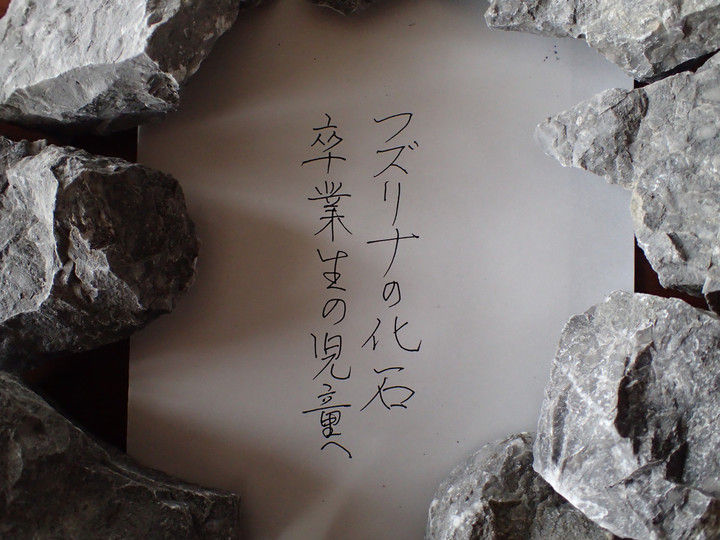 フズリナの化石
卒業生の児童へ